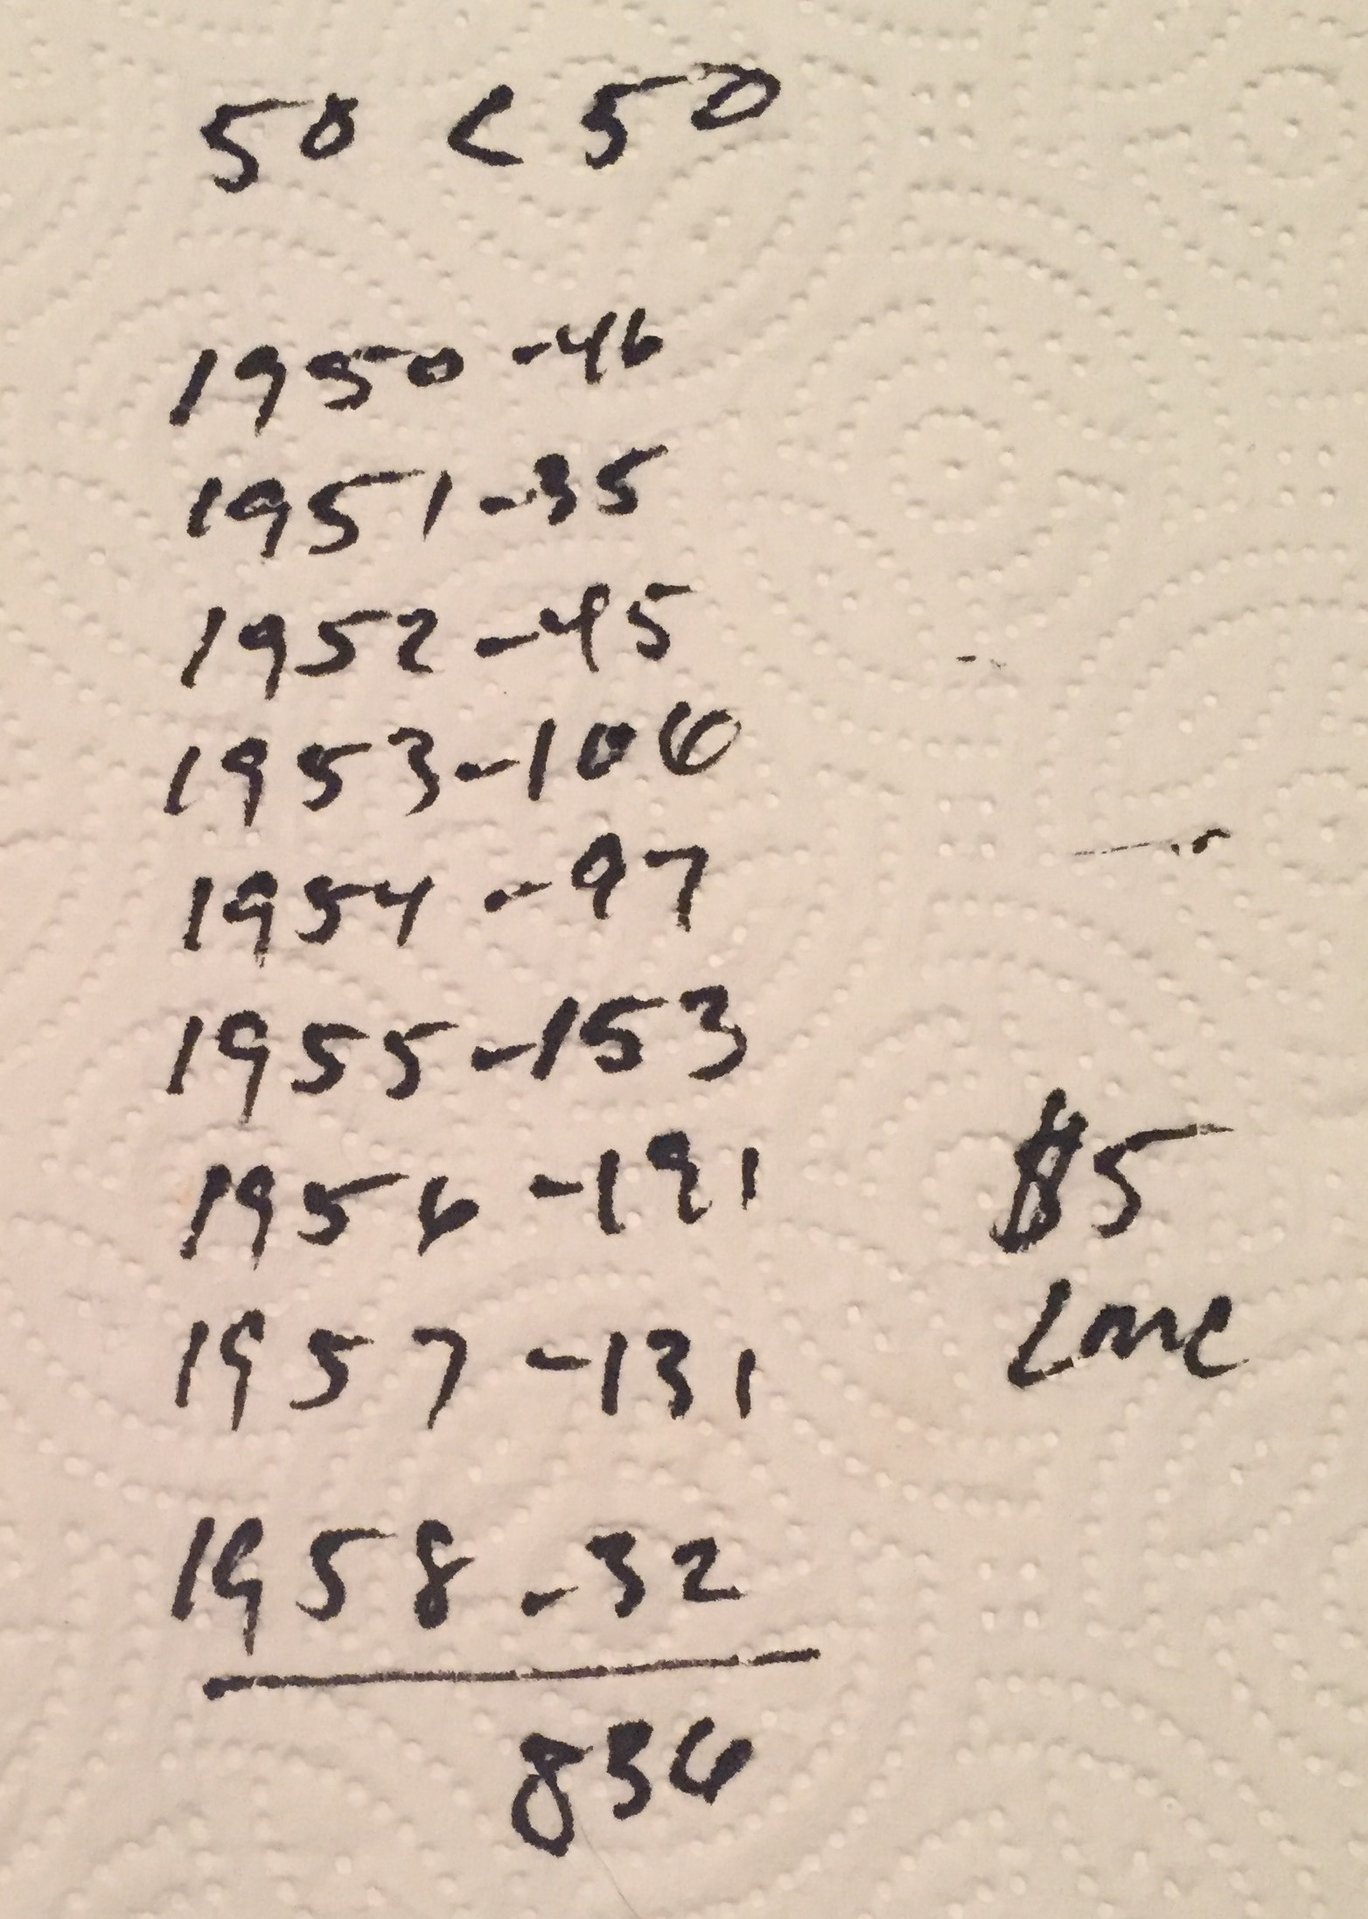 50 < 50
1950 - 46
1951 - 35
1952 - 45
1953 - 106
1954 - 97
1955 - 153
1956 - 191
1957 - 131
1958 - 32
836
$5